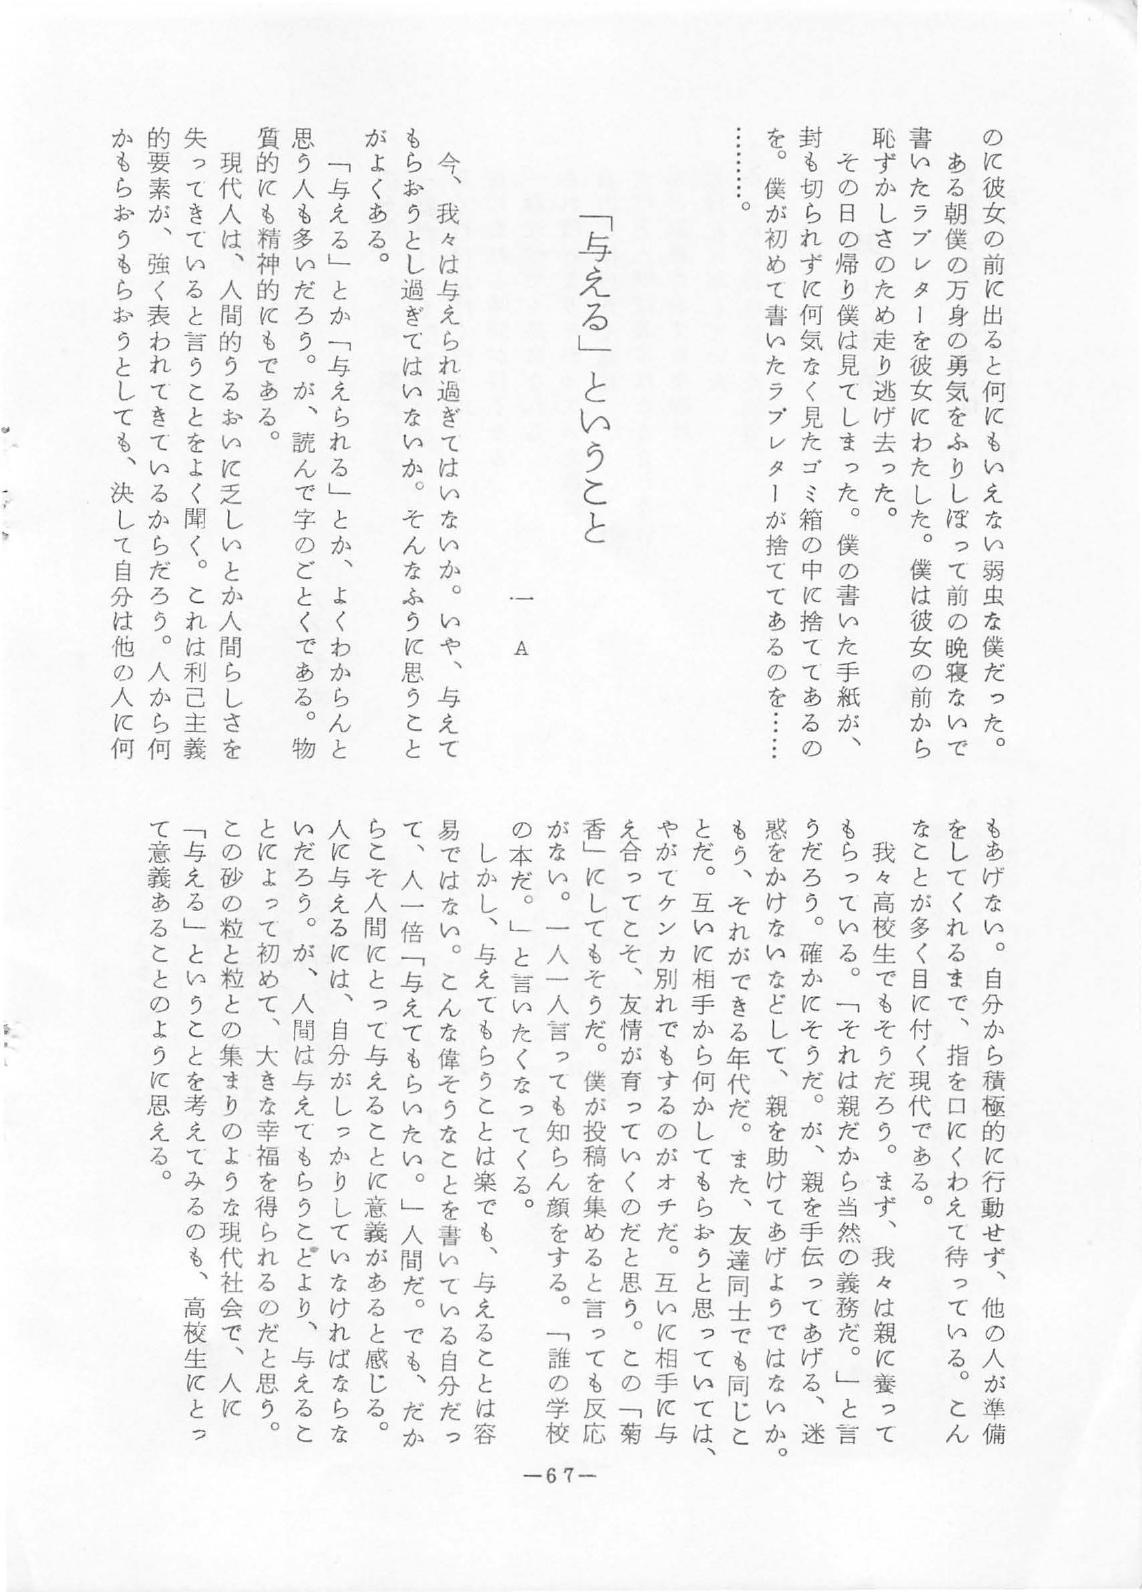 のに彼女の前に出ると何にもいえない弱虫な僕だった。
ある朝僕の万身の勇気をふりしぼって前の晩寝ないで
書いたラブレターを彼女にわたした。僕は彼女の前から
恥ずかしさのため走り逃げ去った。
その日の帰り僕は見てしまった。僕の書いた手紙が、
封も切られずに何気なく見たゴミ箱の中に捨ててあるの
を。僕が初めて書いたラブレターが捨ててあるのを……
………。
「与える」ということ
一A
今、我々は与えられ過ぎてはいないか。いや、与えて
もらおうとし過ぎてはいないか。そんなふうに思うこと
がよくある。
「与える」とか「与えられる」とか、よくわからんと
思う人も多いだろう。が、読んで字のごとくである。物
質的にも精神的にもである。
現代人は、人間的うるおいに乏しいとか人間らしさを
失ってきていると言うことをよく聞く。これは利己主義
的要素が、強く表われてきているからだろう。人から何
かもらおうもらおうとしても、決して自分は他の人に何
もあげない。自分から積極的に行動せず、他の人が準備
をしてくれるまで、指を口にくわえて待っている。こん
なことが多く目に付く現代である。
我々高校生でもそうだろう。まず、我々は親に養って
もらっている。「それは親だから当然の義務だ。」と言
うだろう。確かにそうだ。が、親を手伝ってあげる、迷
惑をかけないなどして、親を助けてあげようではないか。
もう、それができる年代だ。また、友達同士でも同じこ
とだ。互いに相手から何かしてもらおうと思っていては、
やがてケンカ別れでもするのがオチだ。互いに相手に与
え合ってこそ、友情が育っていくのだと思う。この「菊
香」にしてもそうだ。僕が投稿を集めると言っても反応
がない。一人一人言っても知らん顔をする。「誰の学校
の本だ。」と言いたくなってくる。
しかし、与えてもらうことは楽でも、与えることは容
易ではない。こんな偉そうなことを書いている自分だっ
て、人一倍「与えてもらいたい。」人間だ。でも、だか
らこそ人間にとって与えることに意義があると感じる。
人に与えるには、自分がしっかりしていなければならな
いだろう。が、人間は与えてもらうことより、与えるこ
とによって初めて、大きな幸福を得られるのだと思う。
この砂の粒と粒との集まりのような現代社会で、人に
「与える」ということを考えてみるのも、高校生にとっ
て意義あることのように思える。
—67—